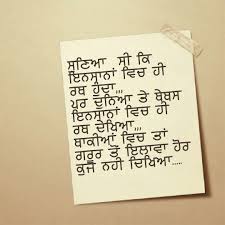 ਸੁਣਿਆ ਸੀ ਕਿ
ਇਨਸਾਨਾਂ ਵਿਚ ਹੀ
ਰਬ ਹੁੰਦਾ,,,
ਪਰ ਦੁਨਿਆ ਤੇ ਬੇਬਸ
ਇਨਸਾਨਾਂ ਵਿਚ ਹੀ
ਰਬ ਦੇਖਿਆ,,,
ਬਾਕੀਆਂ ਵਿਚ ਤਾਂ
ਗਰੂਰ ਤੋਂ ਇਲਾਵਾ ਹੋਰ
ਕੁਜੱ ਨਹੀ ਦਿਖਿਆ.....